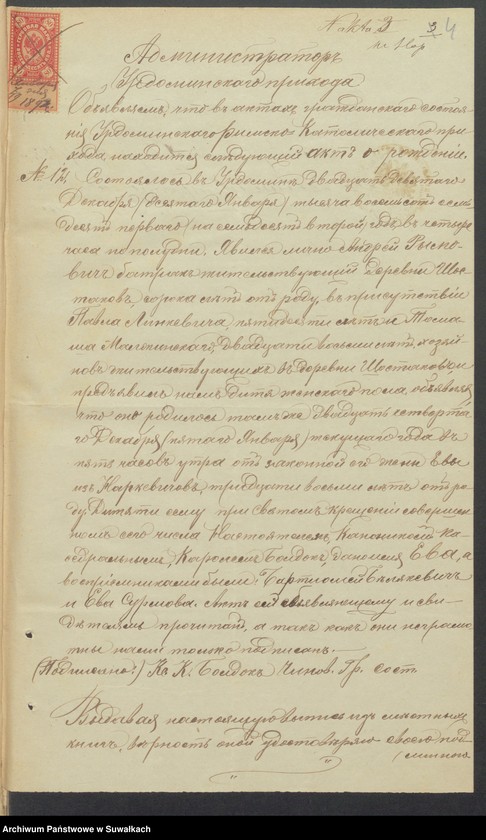 3 4
Администраторъ
Урдоминскаго прихода
Объявляемъ, что въ актахъ гражданскаго состоя-
нія Урдоминскаго Римско Католическаго при
хода, находится слѣдующій актъ о рожденіи.
№ 12. Состоялось въ Урдоминѣ двадцать девятаго
Декабря /десятаго Января/ тысяча восемьсотъ семь
десятъ перваго /на семьдесятъ второй/ годъ въ четыре
часа по полудни. Явился лично Андрей
вичъ батракъ жительствующій деревни Шос
таковъ, сорока лѣтъ отъ роду, въ присутствіи
Павла Линкевича пятидесяти лѣтъ и Тома
ша двадцати восьми лѣтъ, хозяй
новъ жительствующихъ въ деревни Шостаковъ и
предъявилъ намъ дитя женскаго пола, объявляя
что оно родилось тамъ же двадцать четверта
го Декабря /пятаго Января/ текущаго года въ
пять часовъ утра отъ законной его жены Евы
изъ Наркевичовъ, тридцати восьми лѣтъ отъ ро
ду. Дитяти сему при Святомъ крещеніи совершен
номъ сего числа Настоятелемъ Каноникомъ Ка-
ѳедральнымъ Каролемъ Болдокъ дано имя Ева, а
воспріемниками были Бартломей Белякевичъ
и Ева Сурмова. Актъ сей объявляющему и сви-
дѣтелямъ прочитанъ, а такъ какъ они неграмо
тны нами только подписанъ.
(Подписано:) Кс. К. Болдокъ Чинов. Гр. Сост.
Выдавая настоящую выпись изъ метичныхъ
книгъ, вѣрность оной удостовѣряю своею под
Archiwum Państwowe w Suwałkach